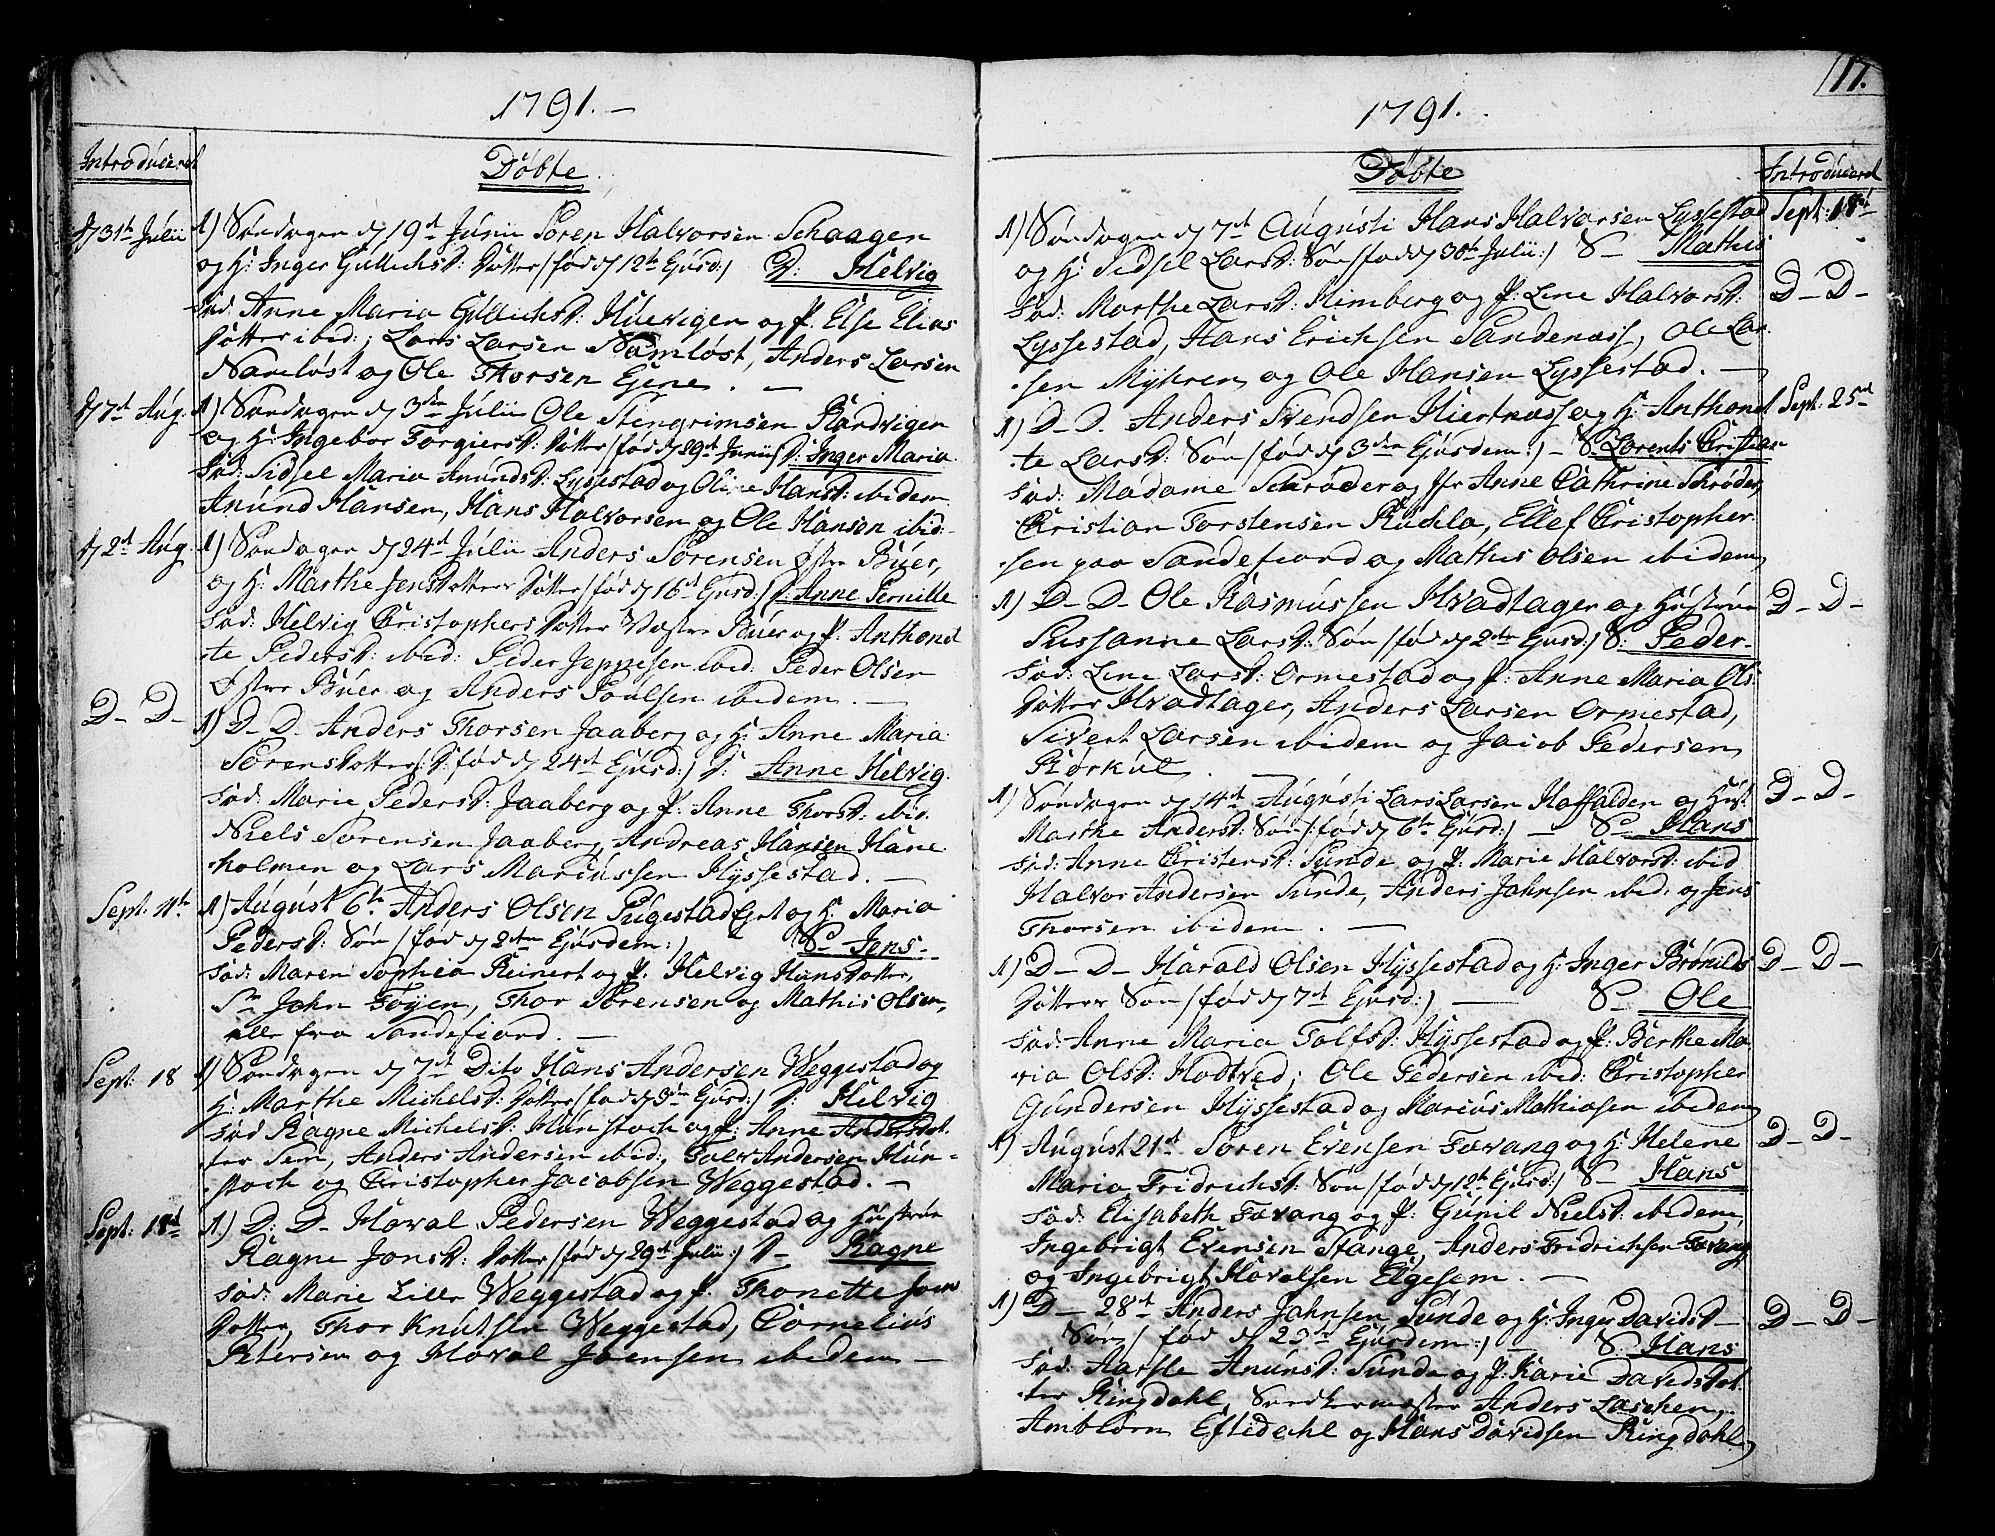 1791. –
Introduceret
Døbte
d 31te Julii
1) Søndagen d 19de Junii Søren Halvorsen Schaagen
og H: Inger Gullichsd: Datter /: fød d 12te Ejusd:/ D: Helvig
Fad: Anne Maria Gullichsd: Huevigen og P. Else Elias
Datter ibid:, Lars Larsen Namløst, Anders Larsen
Namløst og Ole Thorsen Ejene. –
d 7de Aug.
1) Søndagen d 3die Julii Ole Stengrimsen Rardvigen
og H: Ingebor Torgiersd: Datter /: fød d 29de Junii/ D: Inger Maria
Fad: Sidsel Maria Anundsd: Lyssestad og Oline Hansd: ibidem
Anund Hansen, Hans Halvorsen og Ole Hansen ibid:
d 2de Aug.
1) Søndagen d 24de Julii Anders Sørensen Østre Buer,
og H: Marthe Jens Datter Datter /: fød d 16de Ejusd:/ D: Anne Pernille
Fad: Helvig Christophers Datter Vestre Buer og P. Anthonet
te Pedersd: ibid: Peder Jeppesen ibid: Peder Olsen
Østre Buer og Anders Poulsen ibidem. –
D– D–
1) D– D– Anders Thorsen Jaaberg og H: Anne Maria
Sørens Datter /: D: fød d 24de Ejusd:/ D: Anne Helvig.
Fad: Marie Pedersd: Jaaberg og P: Anne Thorsd: ibid.
Niels Sørensen Jaaberg, Andreas Hansen Hane
holmen og Lars Mariussen Hyssestad. –
Sept. 4te
1) August 6te Anders Olsen Pugestad Ejet og H: Maria
Pedersd: Søn /: fød d 2den Ejusdem:/ S– Jens –
Fad: Maren Sophia Reinert og P. Helvig Hans Datter,
Sr John Foyen, Thor Sørensen og Mathis Olsen,
alle fra Sandefiord. –
Sept: 18
1) Søndagen d 7de Dito Hans Andersen Weggestad og
H: Marthe Michelsd: Datter /: fød d 3die Ejusd:/ D: Helvig
Fad Ragne Michelsd: Hunstoch og P: Anne Andersdat
ter Sem, Anders Andersen ibid:, Tolv Andersen Hun-
stoch og Christopher Jacobsen Weggestad. –
Sept: 18de
1) D: D– Hoval Pedersen Weggestad og Hustrue
Ragne Jonsd: Datter /: fød d 29de Julii:/ D– Ragne
Fad: Marie Lille Weggestad og P. Thonette Joens
Datter, Thor Knutsen Weggestad, Cornelius
Petersen og Hoval Joensen ibidem –
17.
1791.
Døbte
Introduceret
1) Søndagen d 7de Augusti Hans Halvorsen Lyssestad
og H: Sidsel Larsd: Søn /: fød d 30te Julii:/ S– Mathis
Fad: Marthe Larsd: Himberg og P: Lene Halvorsd:
Lyssestad, Hans Erichsen Sandenæss, Ole Lar
sen Myhren og Ole Hansen Lyssestad. –
Sept: 18de
D– D–
1) D– D. Anders Svendsen Hiertnæss og H: Anthonet
te Larsd: Søn /: fød d 3die Ejusdem:/ – S– Lorents Cristian
Fad: Madame Schrøder og Jfr Anne Cathrine Schrøder,
Kristian Torstensen Ruchla, Ellef Christopher
sen paa Sandefiord og Mathis Olsen ibidem,
Sept: 25de
1) D– D– Ole Rasmussen Hvadtager og Hustrue
Sussanne Larsd: Søn /: fød d 2den Ejusd:/ S: Peder –
Fad: Lene Larsd: Ormestad og P: Anne Maria Ols
Datter Hvadtager, Anders Larsen Ormestad,
Sivert Larsen ibidem og Jacob Pedersen
Rørkul. –
D– D–
1) Søndagen d 14de Augusti Lars Larsen Haffalden og Hust
Marthe Andersd: Søn /: fød d 6te Ejusd:/ – S– Hans
Fad: Anne Christensd: Sunde og P: Marie Halvorsd: ibid
Halvor Andersen Sunde, Anders Johnsen ibid: og Jens
Thorsen ibidem. –
D– D–
1) D– D– Harald Olsen Hyssestad og H: Inger Brønilds
Datter Søn /: fød d 7de Ejusd:/ – S– Ole
Fad: Anne Maria Tolfsd: Hyssestad og P: Berthe Ma
ria Olsd: Hodtved; Ole Pedersen ibid: Christopher
Gundersen Hyssestad og Marius Mathiasen ibidem,
D– D–
1) August 21de Søren Evensen Fævang og H: Helene
Maria Fridrichsd: Søn /: fød d 12te Ejusd:/ S– Hans
Fad: Elisabeth Fævang og P: Gunil Nielsd: ibidem,
Ingebrigt Evensen Stange, Anders Fridrichsen Fævang
og Ingebrigt Hovelsen Elgesem. –
D– D–
1) D– 28de Anders Johnsen Sunde og H: Inger Davidsd –
Søn /: fød d Ejusdem:/ – S. Hans
Fad: Aarsle Anunsd: Sunde og P: Karie Davidsdat
ter Ringdahl, Anders Laschen,
Amblorn Eftedahl og Hans Davidsen Ringdahl,
D– D–